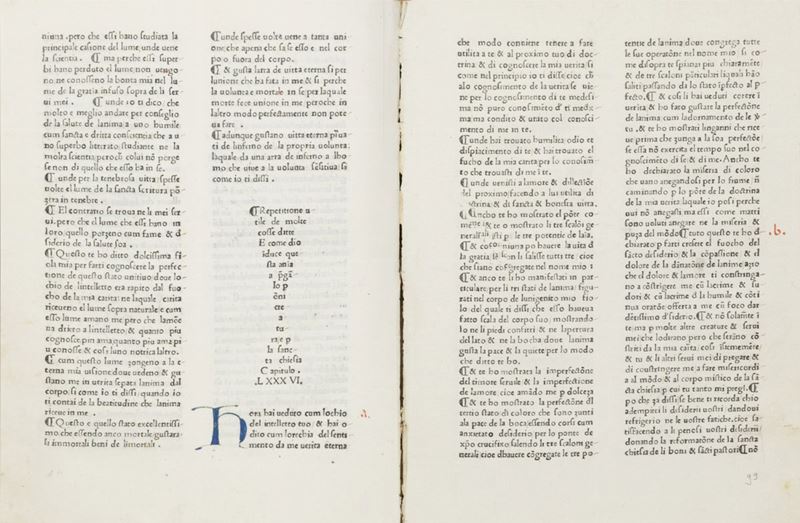 niuna .pero che essi hano studiata la
principale casione del lume unde uene
la scientia . ¶ ma perche essi super
bi hano perduto el lume non ueugo
no ne conosseno la bonta mia nel lu
me de la gratia infuso sopra de li ser
ui mei . ¶ unde io ti dico che
molto e meglio andare per conseglio
de la salute de lanima a uno humile
cum sancta e dritta conscientia che a u
no superbo litterato studiante ne la
molta scientia perochi colui nō porge
se non di quello che esso ha in se .
¶ unde per la tenebrosa uita spesse
uolte el lume de la sancta scritura pō
gera in tenebre .
¶ El contrario se troua ne li mei ser
ui . pero che el lume che essi hano in
loro quello porgeno cum fame & d
siderio de la salute soa .
¶ Questo te ho ditto dolcissima fi
ola mia per farti cognoscere la perfec
tione de questo stato unitiuo doue lo
chio de lintelletto era rapito dal fuo
cho de la mia carita ne laquale carita
riceueno el lume sopra naturale e cum
esso lume amano me pero che lamore
ua drieto a lintelletto & quanto piu
cognosce piu ama quanto piu ama pi
u conosse & cosi luno notrica laltro .
¶ cum questo lume gongeno a la e
terna mia uisione doue uedeno & gu
stano me in uerita separata lanima dal
corpo si come io ti dissi quando io
ti contai de la beatitudine che lanima
riceue in me .
¶ Questo e quello stato excellentissi
mo che essendo anco mortale gustara
li immortali beni de limortali .
¶ unde spesse uolte uene a tanta uni
one che apena che sa se esso e nel cor
po o fuora del corpo .
¶ & gusta larra de uitta eterna si per
lunione che ha fata in me & si perche
la uoluntà e mortale in se per laquale
morte fece unione in me peroche in
laltro modo perfectamente non pote
ua fare .
¶ adunque gustano uitta eterna priua
ti de linferno de la propria uolunta
laquale da una arra de inferno a lho
mo che uiue a la uolunta sensitiua si
come io ti dissi .
¶ Repetitione u
tile de molte
cosse datte
E come dio
iduce que
sta ania
a pgā
lo p
ōni
cre
a
tu
ra e p
la sanc
ta chiesa
Capitulo .
LXXXVI.
Hora hai ueduto cum lochio
del intelletto tuo & hai o
dito cum lorechia del senti
mento da me uerita eterna
a.
che modo conuiene tenere a fare
utilita a te & al proximo tuo di doc
trina & di cognoscere la mia uerita si
come nel principio io ti dissi cioe cō
alo cognoscimento de la uerita se uie
ne per lo cognoscimento di te medesi
mo nō puro conoscimēto d ti medes
mo ma condito & unito col conosci
mento di me in te .
¶ unde hai trouato humilita odio et
dispiacimento di te & hai trouato el
fuocho de la mia carita per lo conosim
to che trouasti di me ī te .
¶ unde uenisti a lamore & dilectiōe
del proximo facendo a lui utilita di
dotrina & di sancta & honesta uita .
¶ Ancho te ho mostrato el pōte co
me sta & te o mostrato li tre scaloi ge
nerali posti p le tre potentie de laia
¶ & como niuno po hauere la uita d
la gratia se non li salisse tutti tre cioe
che siano cōgregate nel nome mio :
¶ & anco te li ho manifestati in par
ticulare per li tri stati de lanima figu
rati nel corpo de lunigenito mio fio
lo del quale ti dissi che esso haueua
fatto scala del corpo suo mostrando
lo ne li piedi confitti & ne lapertura
del lato & ne la bocha doue lanima
gusta la pace & la quiete per lo modo
che ditto te ho .
¶ & te ho mostrata la imperfectiōe
del timore seruile & la imperfectione
de lamore cioe amādo me p dolceza
¶ & te ho mostrato la perfectiōe dl
tertio stato di coloro che sono gunti
ala pace de la bocca essendo corsi cum
anxietato desiderio per lo ponte de
xpō crucifixo salendo li tre scaloni ge
nerali cioe dhauere cōgregate le tre po
tentie de lanima doue congrega tutte
le sue operatiōne nel nome mio si co
me disopra te spianai piu chiaramēte
& de tre scaloni pticulari liquali hāo
saliti passando da lo stato īpfecto al p
fecto . ¶ & cosi li hai ueduti correre ī
uerita & ho fato gustare la perfectiōe
de lanima cum ladornamento de le v
tu . & te ho mostrati lingani che rice
ue prima che gunga a la soa perfectiōe
se essa nō exercita el tempo suo nel co
gnoscimēto di se & di me . Ancho te
ho dechiarato la miseria di coloro
che uano anegandosi per lo fiume nō
caminando p lo pōte de la doctrina
de la mia uerita laquale io posi perche
uoi nō anegasti ma essi come matti
sono uoluti anegare ne la miseria &
puza del mōdo ¶ Tuto questo te ho d
chiarato p farti cresere el fuocho del
sācto desiderio & la cōpassione & el
dolore de la dānatiōe de lanime acio
che el dolore & lamore ti constringa
no a cōstrigere me cū lacrime & su
dori & cū lacrime d la humile & cōti
nua oratiōe offerta a me cū foco dar
dētissimo dsiderio . ¶ & nō solamēte ī
te ma p molte altre creature & serui
mei che lodirano pero che serāno cō
stritti da la mia caita cosi isiememēte
& tu & li altri serui mei di pregare &
di constringere me a fare misericordi
a al mōdo & al corpo mistico de la sā
cta chiesia p cui tu tanto mi pregi . ¶
po che ga dissi se bene ti ricorda chio
adempirei li disiderii uostri dandoui
refrigerio ne le uostre fatiche cioe sa
tisfacendo a li penosi uostri disiderii
donando la riformatiōe de la sancta
chiesia de li boni & sācti pastori ¶ nō
.b.
99